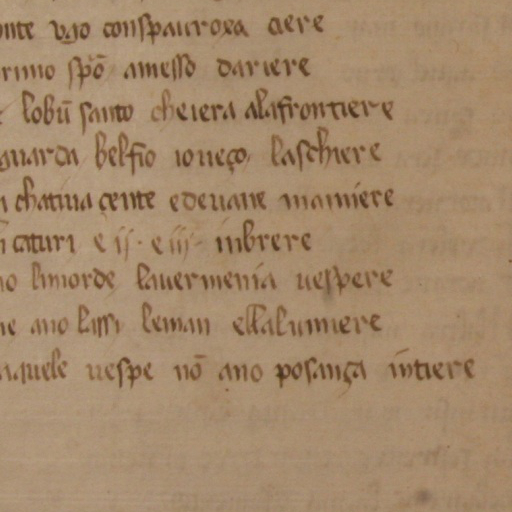 onte ugo conspauroxa ciere
rimo spõ amesso dariere
lobũ santo cheiera alafrontiere
guarda belfio ioueço laschiere
chatiua çente edeuane maniere
caturi e ii · e iii · inbrere
no limorde lauermenia uespere
ne ano lassi leman ellalumiere
aquele uespe nõ ano posança intiere